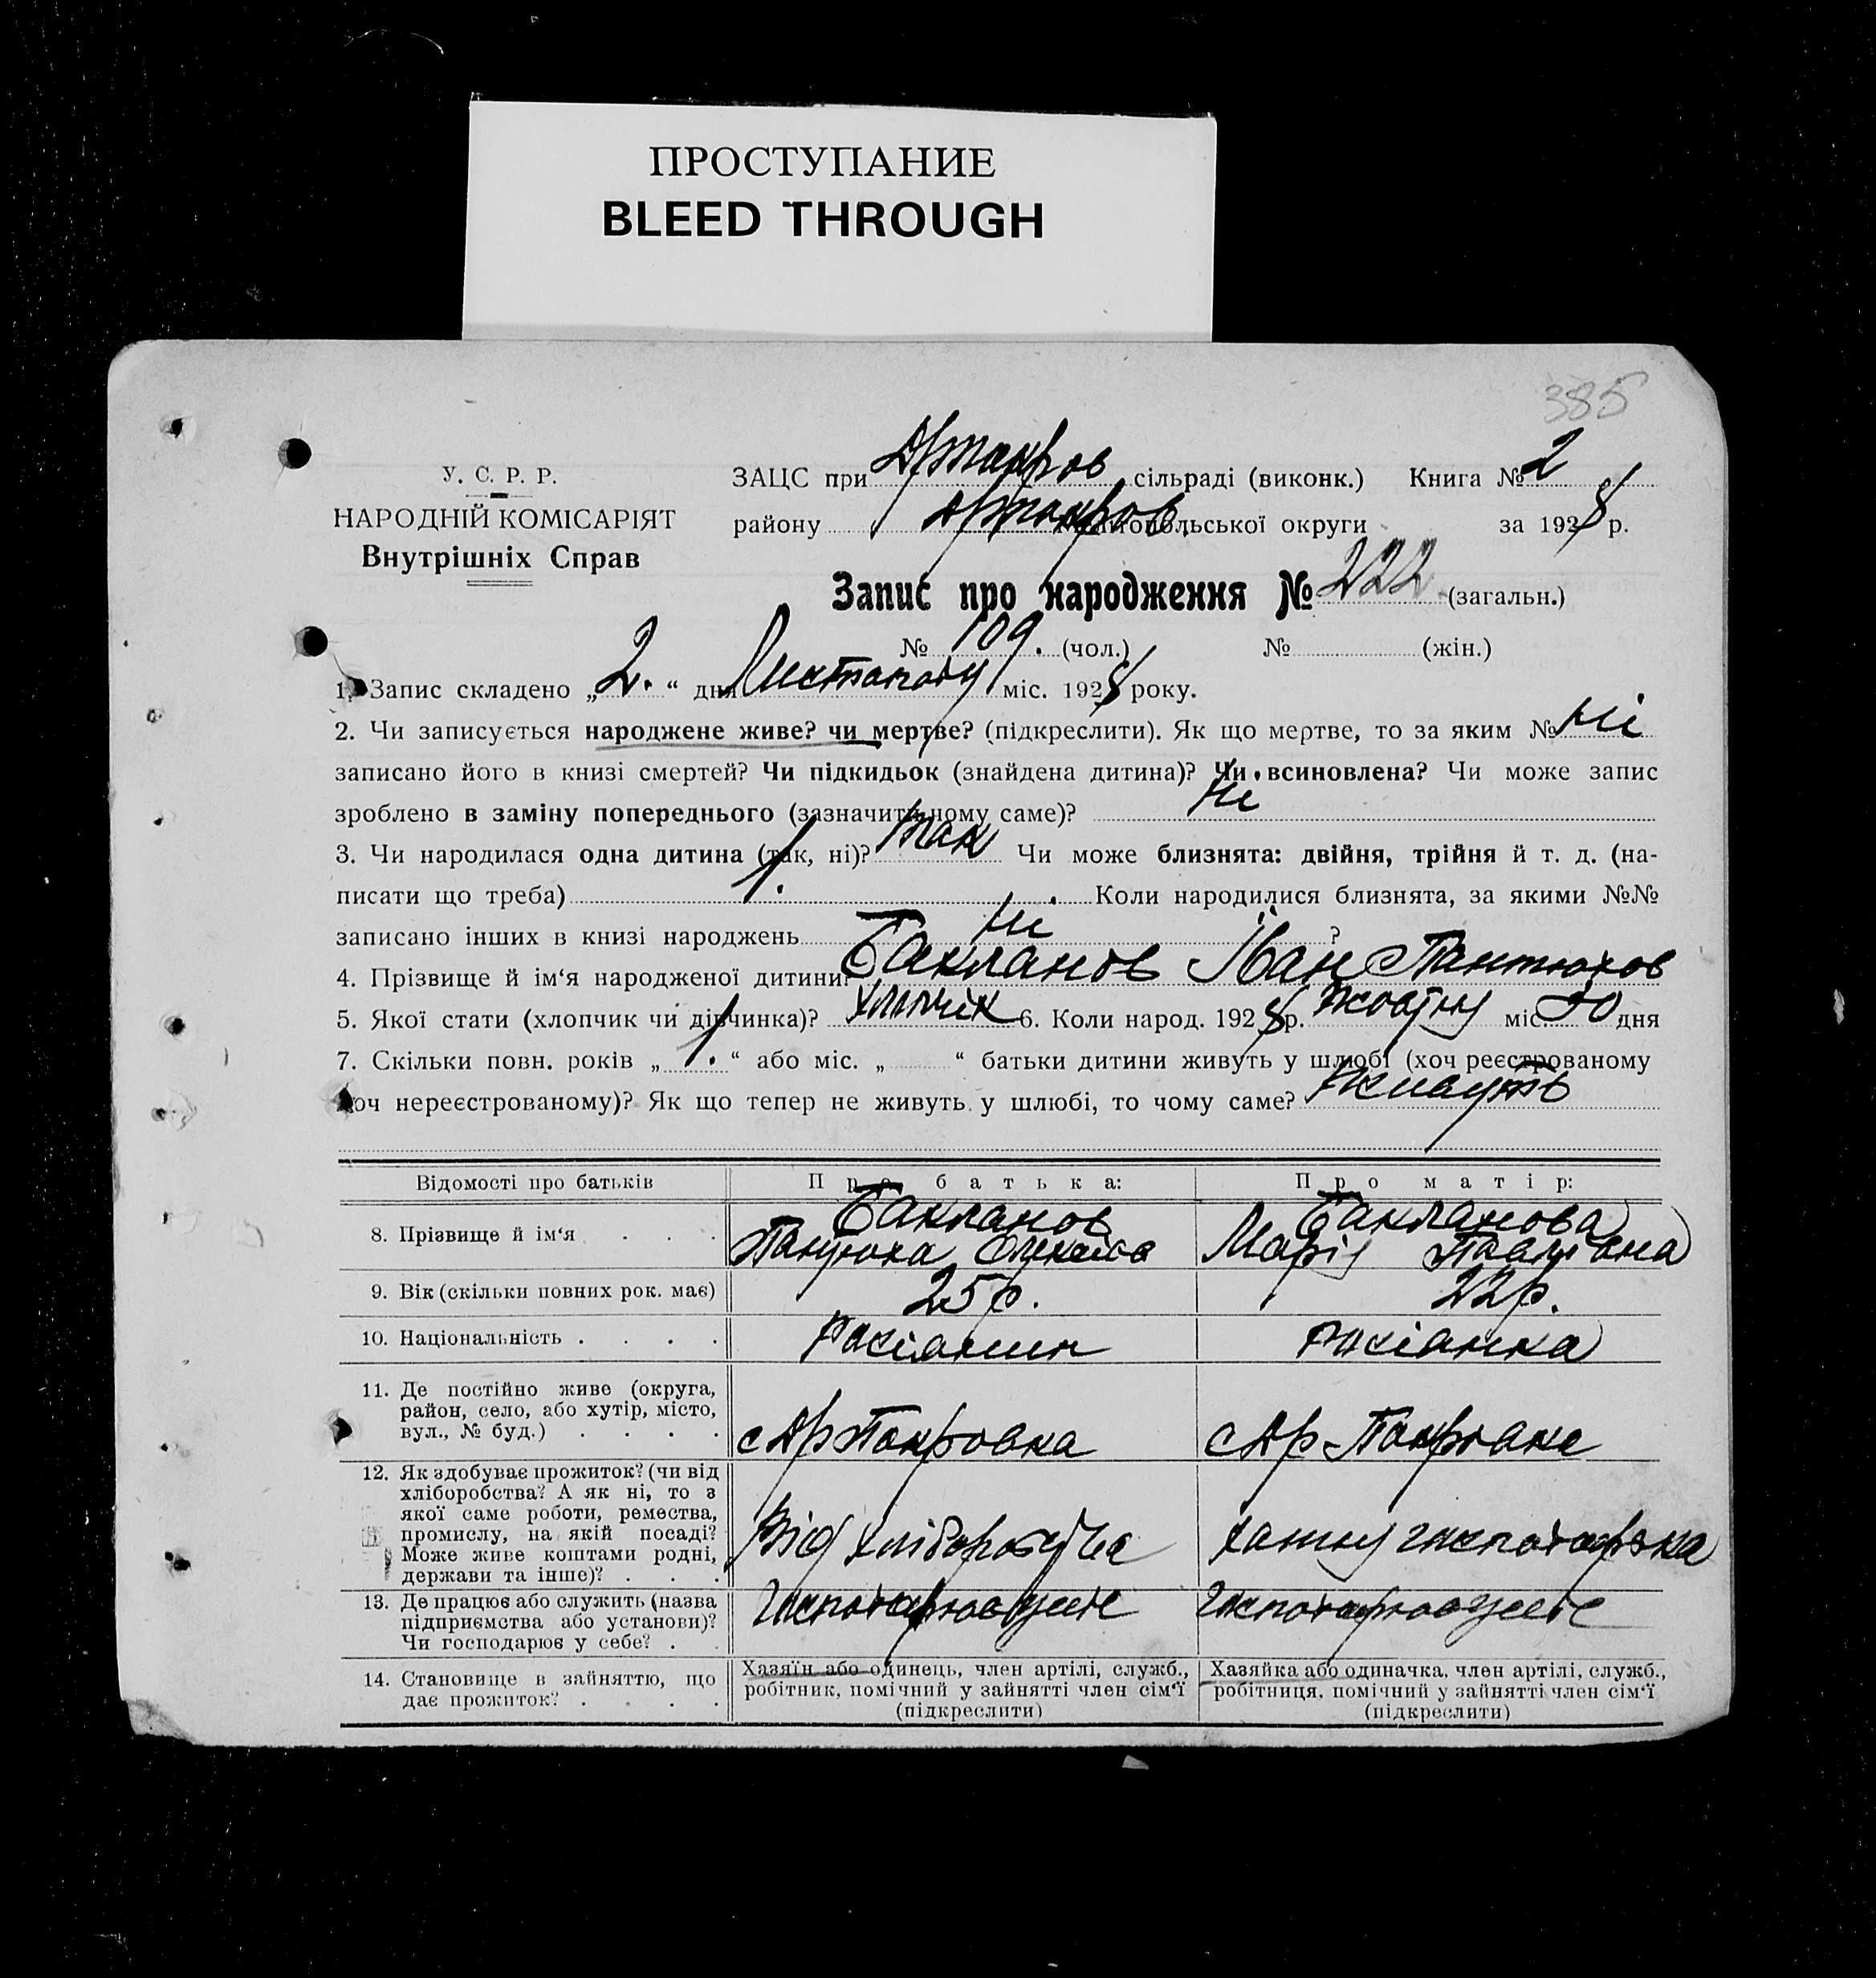 ПРОСТУПАНИЕ
BLEED THROUGH
385
У. С. Р. Р.
НАРОДНІЙ КОМІСАРІЯТ
Внутрішніх Справ
ЗАЦС при Арпакров сільраді (виконк.) Книга № 2
району Арпакров. Мелітопольської округи за 1928 р.
Запис про народження № 222. (загальн.)
№ 109. (чол.) № (жін.)
1. Запис складено „2.“ дня Листопаду міс. 1928 року.
2. Чи записується народжене живе? чи мертве? (підкреслити). Як що мертве, то за яким № Ні
записано його в книзі смертей? Чи підкидьок (знайдена дитина)? Чи всиновлена? Чи може запис
зроблено в заміну попереднього (зазначити чому саме)? Ні
3. Чи народилася одна дитина (так, ні)? так Чи може близнята: двійня, трійня й т. д. (на-
писати що треба) 1. Коли народилися близнята, за якими №№
записано інших в книзі народжень Ні ?
4. Прізвище й ім‘я народженої дитини? Бакланов Іван Пантюхов
5. Якої стати (хлопчик чи дівчинка)? хлопчик 6. Коли народ. 1928 р. жовтну міс. 30 дня
7. Скільки повн. років „1.“ або міс. „ “ батьки дитини живуть у шлюбі (хоч реєстрованому
хоч нереєстрованому)? Як що тепер не живуть у шлюбі, то чому саме? живуть
Відомості про батьків
Про батька:
Про матір:
8. Прізвище й ім‘я
Бакланов
Пантюха
Бакланова
Марія
9. Вік (скільки повних рок. має)
25 р.
22 р.
10. Національність
Росіянин
росіанка
11. Де постійно живе (округа,
район, село, або хутір, місто,
вул., № буд.)
с Ар Покровка
с Ар Покровка
12. Як здобуває прожиток? (чи від
хліборобства? А як ні, то з
якої саме роботи, ремества,
промислу, на якій посаді?
Може живе коштами родні,
держави та інше)?
Від хліборобства
хатну господарка
13. Де працює або служить (назва
підприємства або установи)?
Чи господарює у себе?
14. Становище в зайняттю, що
дає прожиток?
Хазяїн або одинець, член артілі, служб.,
робітник, помічний у зайнятті член сім‘ї
(підкреслити)
Хазяйка або одиначка, член артілі, служб.,
робітниця, помічний у зайнятті член сім‘ї
(підкреслити)